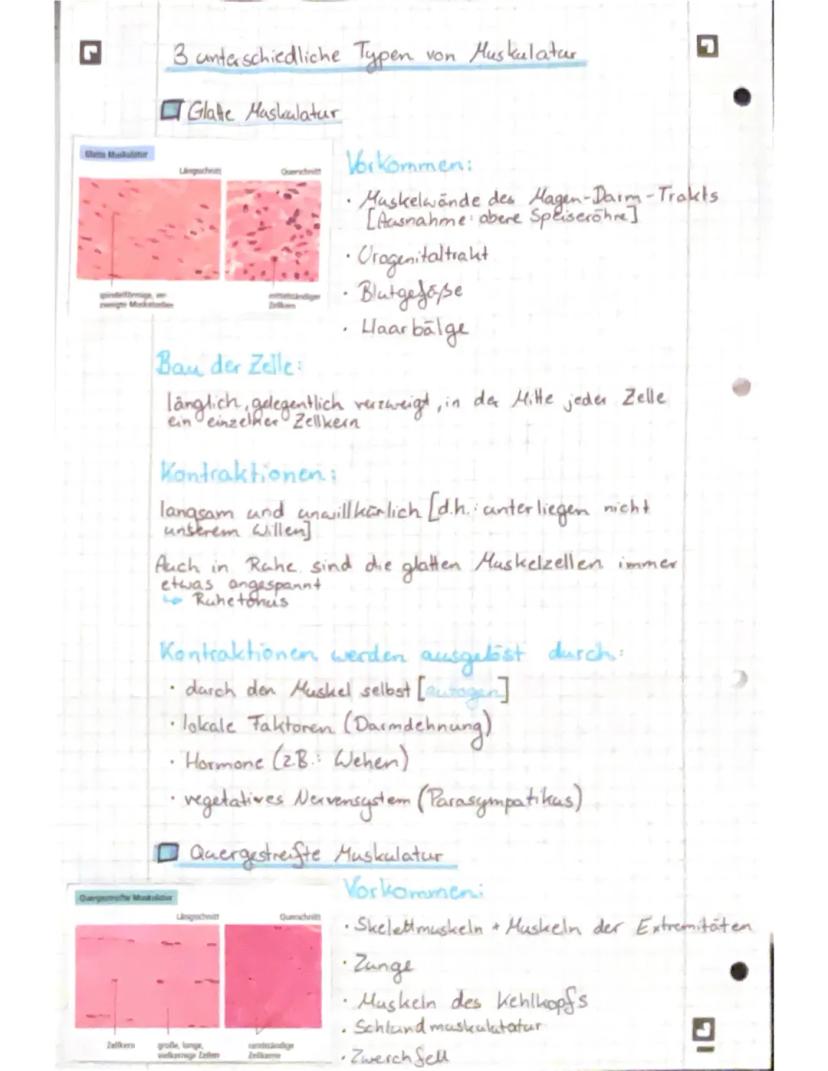 3 unterschiedliche Typen von Muskulatur
Glatte Muskulatur
Glatte Muskulatur
Längsschnitt Querschnitt
spindelförmige, ver-
zweigte Muskelzellen
mittelständiger
Zellkern
Vorkommen:
· Muskelwände des Magen-Darm-Trakts
[Ausnahme: obere Speiseröhre]
· Urogenitaltrakt
· Blutgefäße
· Haarbälge
Bau der Zelle:
länglich, gelegentlich verzweigt, in der Mitte jeder Zelle
ein einzelner Zellkern
Kontraktionen:
langsam und unwillkürlich [d.h.: unterliegen nicht
unserem Willen]
Auch in Ruhe sind die glatten Muskelzellen immer
etwas angespannt
↳ Ruhetonus
Kontraktionen werden ausgelöst durch:
· durch den Muskel selbst [autogen]
· lokale Faktoren (Darmdehnung)
· Hormone (z.B.: Wehen)
· vegetatives Nervensystem (Parasympatikus)
Quergestreifte Muskulatur
Quergestreifte Muskulatur
Längsschnitt Querschnitt
Zellkern
große, lange,
vielkernige Zellen
randständige
Zellkerne
Vorkommen:
· Skelettmuskeln + Muskeln der Extremitäten
· Zunge
· Muskeln des Kehlkopfs
· Schlundmuskulatatur
· Zwerchfell